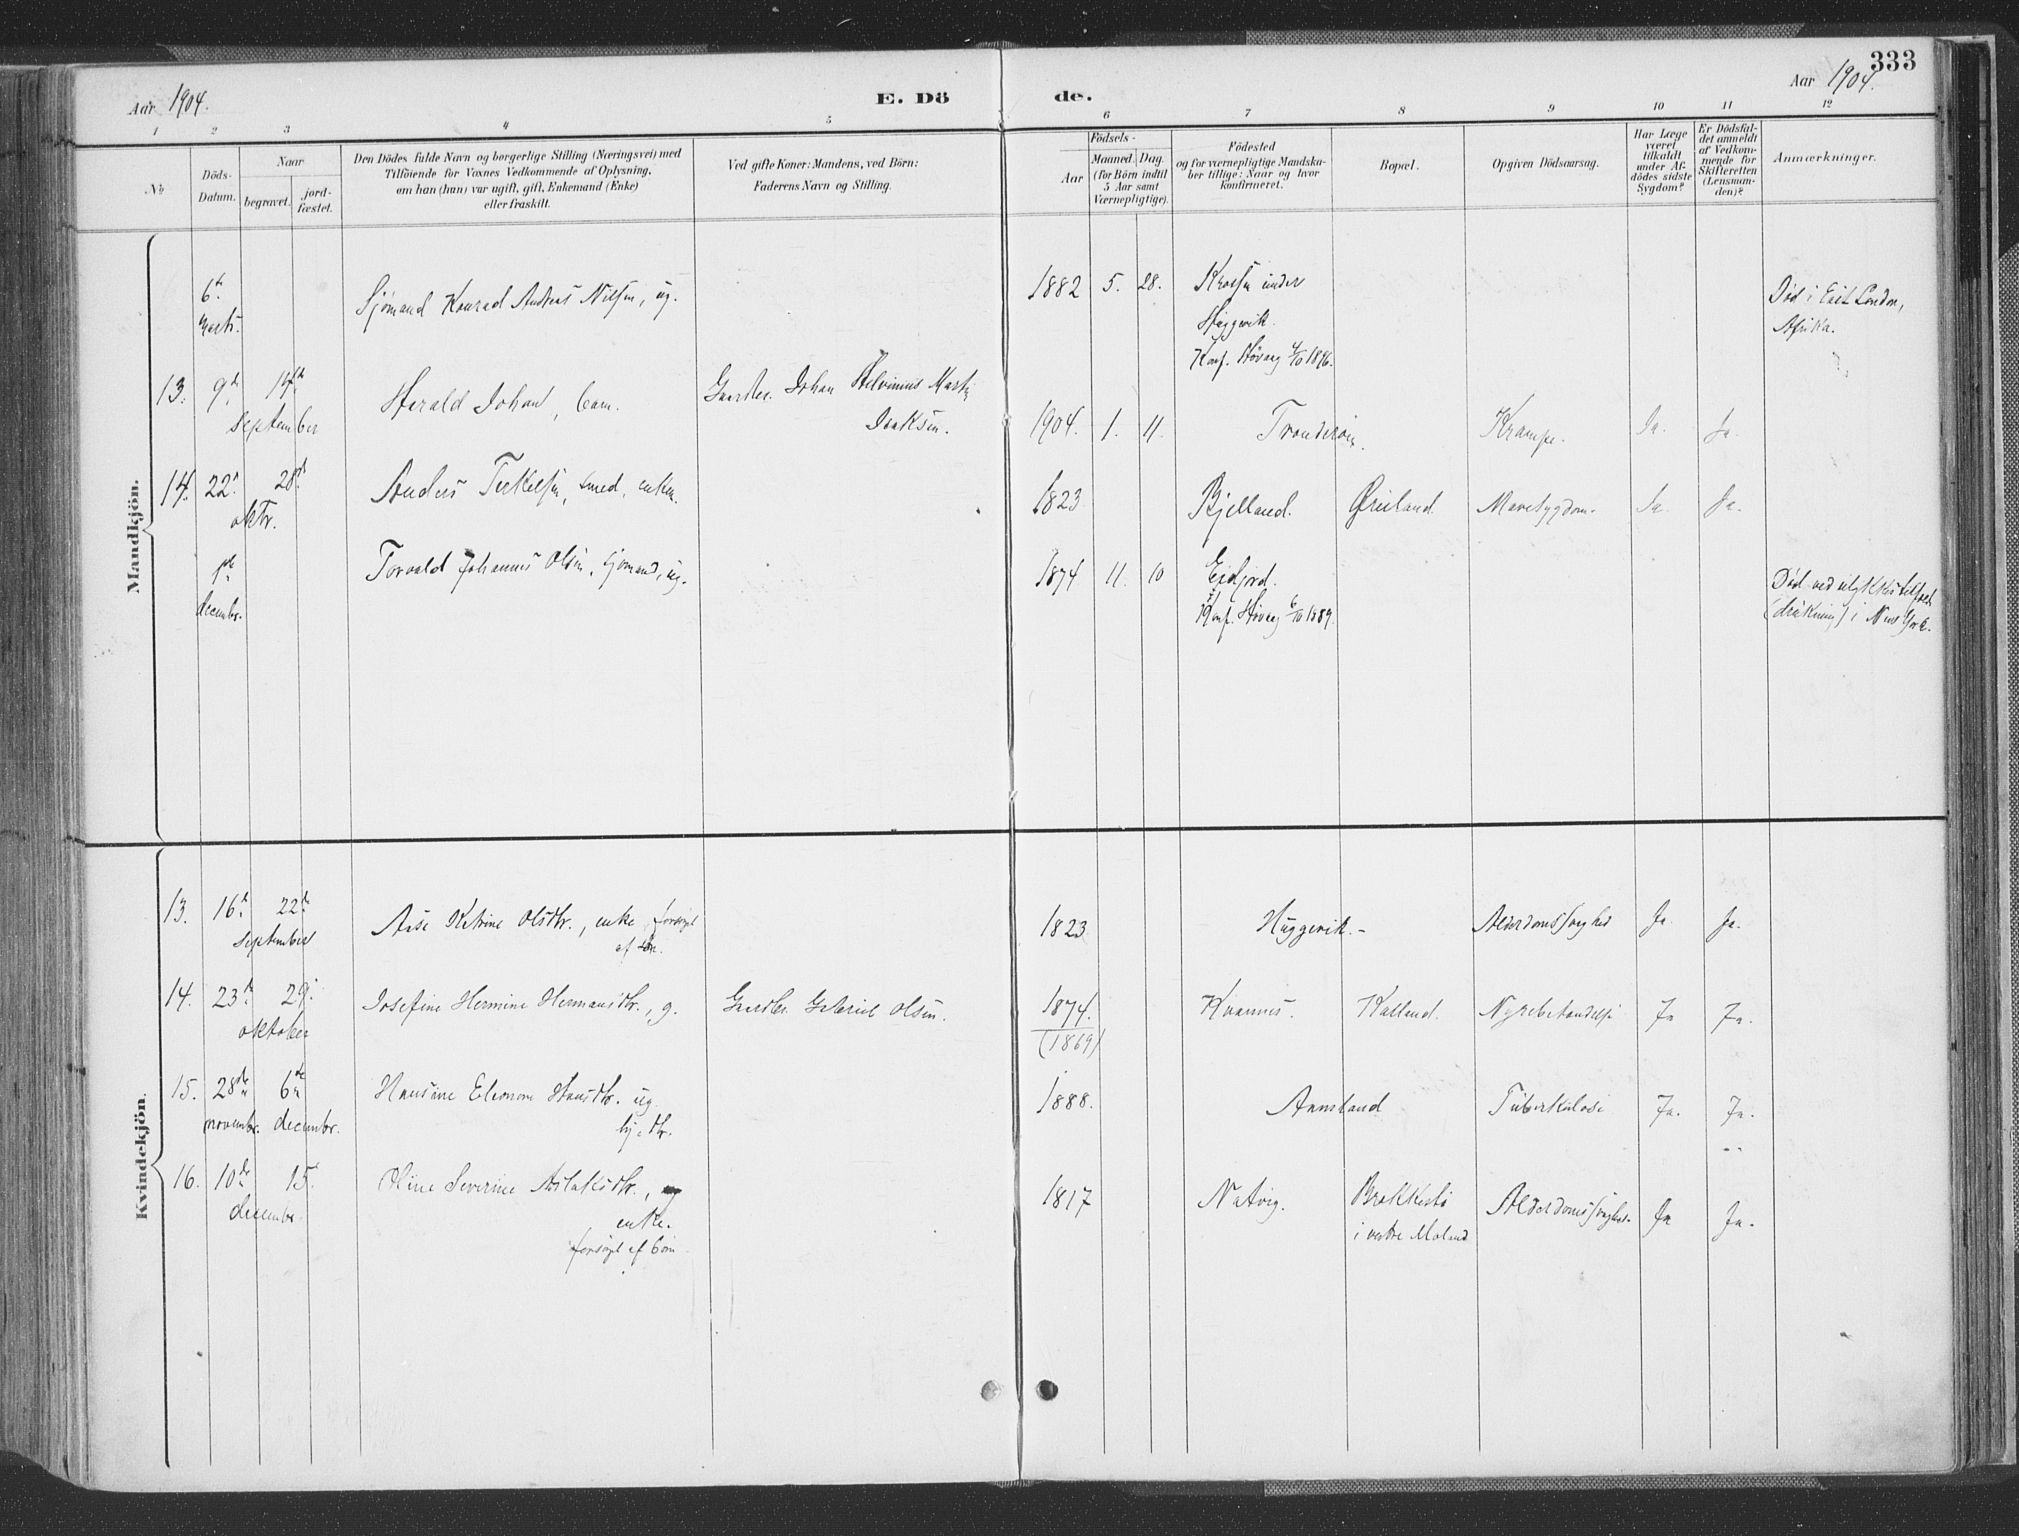 333
Aar 1904.
E. Dö
de.
Aar 1904.
1 2 3 4 5 6 7 8 9 10 11 12
No
Döds-
Datum.
Naar
begravet.
jord-
fæstet.
Den Dödes fulde Navn og borgerlige Stilling (Næringsvei) med
Tilföiende for Voxnes Vedkommende af Oplysning,
om han (hun) var ugift, gift, Enkemand (Enke)
eller fraskilt.
Ved gifte Koner: Mandens, ved Börn:
Faderens Navn og Stilling.
Födsels-
Aar
Maaned. Dag.
(for Börn indtil
5 Aar samt
Værnepligtige).
Födested
og for værnepligtige Mandska-
ber tillige: Naar og hvor
konfirmeret.
Bopæl.
Opgiven Dödsaarsag.
Har Læge
været
tilkaldt
under Af-
dödes sidste
Sygdom?
Er Dödsfal-
det anmeldt
af Vedkom-
mende for
Skifteretten
(Lensman-
den)?
Anmærkninger.
Mandkjön.
6te
Sjömand Konrad Andreas Nilsen, ug.
1882 5. 28.
under
Huggevik.
Konf. Høvaag 4/10 1896.
Död i East London,
Afrika.
13. 9de 14de
september
Herald Johan, barn.
Gaardbr. Johan Martin
Isaksen.
1904. 1. 11.
Krampe. Ja. Ja.
14. 22de 28de
oktbr.
Anders Terkelsen, smed, enkem.
1823
Bjelland. Øreland. Mavesygdom. Ja. Ja.
decembr.
Torvald Johannes Olsen, sjömand, ug.
1874 11. 10
Eidfjord.
Konf. Høvaag 6/10 1889.
Död ved ulykkestilfælde
(drukning) i New York.
Kvindekjön.
13. 16de 22de
september
Aase Katrine Olsdtr., enke, forsörget
af sön.
1823
Huggevik.- Alderdomssvaghed Ja. Ja.
14. 23de 29.
oktober
Josefine Hermine Hermansdtr., g.
Gaardbr. Gabriel Olsen.
1874.
(1869)
Kvannes. Kalland. Nyrebetændelse Ja Ja.
15. 28de 6te
novembr. decembr.
Hansine Eleonore Hansdtr. ug.
hj. dtr.
1888.
Aamland Tuberkulose Ja. Ja.
16. 10de 15.
decembr.
Oline Severine Aslaksdtr.,
enke.
forsörget af börn
1817
Natvig. Brekkestö
i vestre Moland
Alderdomssvaghed. Ja Ja.